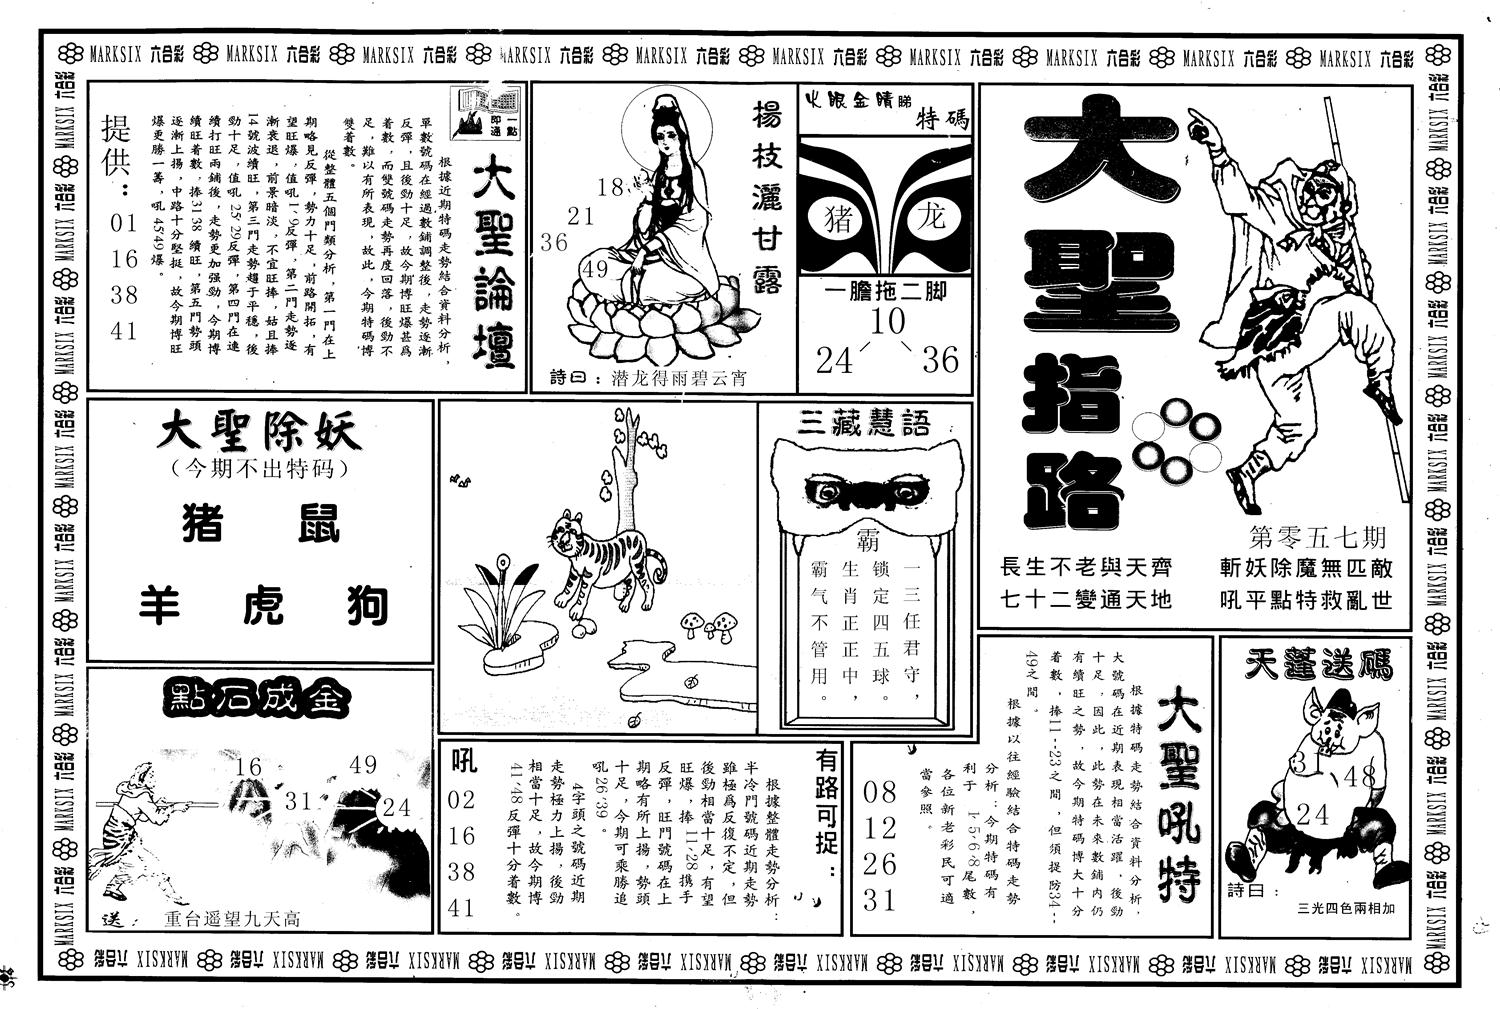 MARKSIX 六合彩 MARKSIX 六合彩 MARKSIX 六合彩 MARKSIX 六合彩 MARKSIX 六合彩 MARKSIX 六合彩 MARKSIX 六合彩 MARKSIX 六合彩 MARKSIX 六合彩 MARKSIX 六合彩
大聖指路
第零五七期
長生不老與天齊
七十二變通天地
斬妖除魔無匹敵
吼平點特救亂世
火眼金睛睇
特碼
猪 龙
一膽拖二脚
10
24 36
楊枝灑甘露
18
21
36
49
詩曰：潜龙得雨碧云宵
一點即通
大聖論壇
根據近期特碼走勢結合資料分析，
單數號碼在經過數鋪調整後，走勢逐漸
反彈，且後勁十足，故今期博旺爆甚爲
着數，而雙號碼走勢再度回落，後勁不
足，難以有所表現，故此，今期特碼博
雙着數。
從整體五個門類分析，第一門在上
期略見反彈，勢力十足，前路開拓，有
望旺爆，值吼1、9反彈，第二門走勢逐
漸衰退，前景暗淡，不宜旺捧，姑且捧
14號波續旺，第三門走勢趨于平穩，後
勁十足，值吼25、29反彈，第四門在連
續打旺兩鋪後，走勢更加强勁，今期博
續旺着數，捧31、38續旺，第五門勢頭
逐漸上揚，中路十分堅挺，故今期博旺
爆更勝一籌，吼45、49爆。
提供：
01
16
38
41
大聖除妖
（今期不出特码）
猪 鼠
羊 虎 狗
三藏慧語
霸
一三任君守，
锁定四五球。
生肖正正中，
霸气不管用。
點石成金
16
49
31
24
送： 重台遥望九天高
有路可捉：
根據整體走勢分析：
半冷門號碼近期走勢
雖極爲反復不定，但
後勁相當十足，有望
旺爆，捧11、28携手
反彈，旺門號碼在上
期略有所上揚，勢頭
十足，今期可乘勝追
吼26、39。
4字頭之號碼近期
走勢極力上揚，後勁
相當十足，故今期博
41、48反彈十分着數。
吼
02
16
38
41
大聖吼特
根據特碼走勢結合資料分析，
大號碼在近期表現相當活躍，後勁
十足，因此，此勢在未來數鋪内仍
有續旺之勢，故今期特碼博大十分
着數，捧11--23之間，但須提防34--
49之間。
根據以往經驗結合特碼走勢
分析：今期特碼有
利于 1、5、6、8尾數，
各位新老彩民可適
當參照。
08
12
26
31
天蓬送碼
3
48
24
詩曰：
三光四色兩相加